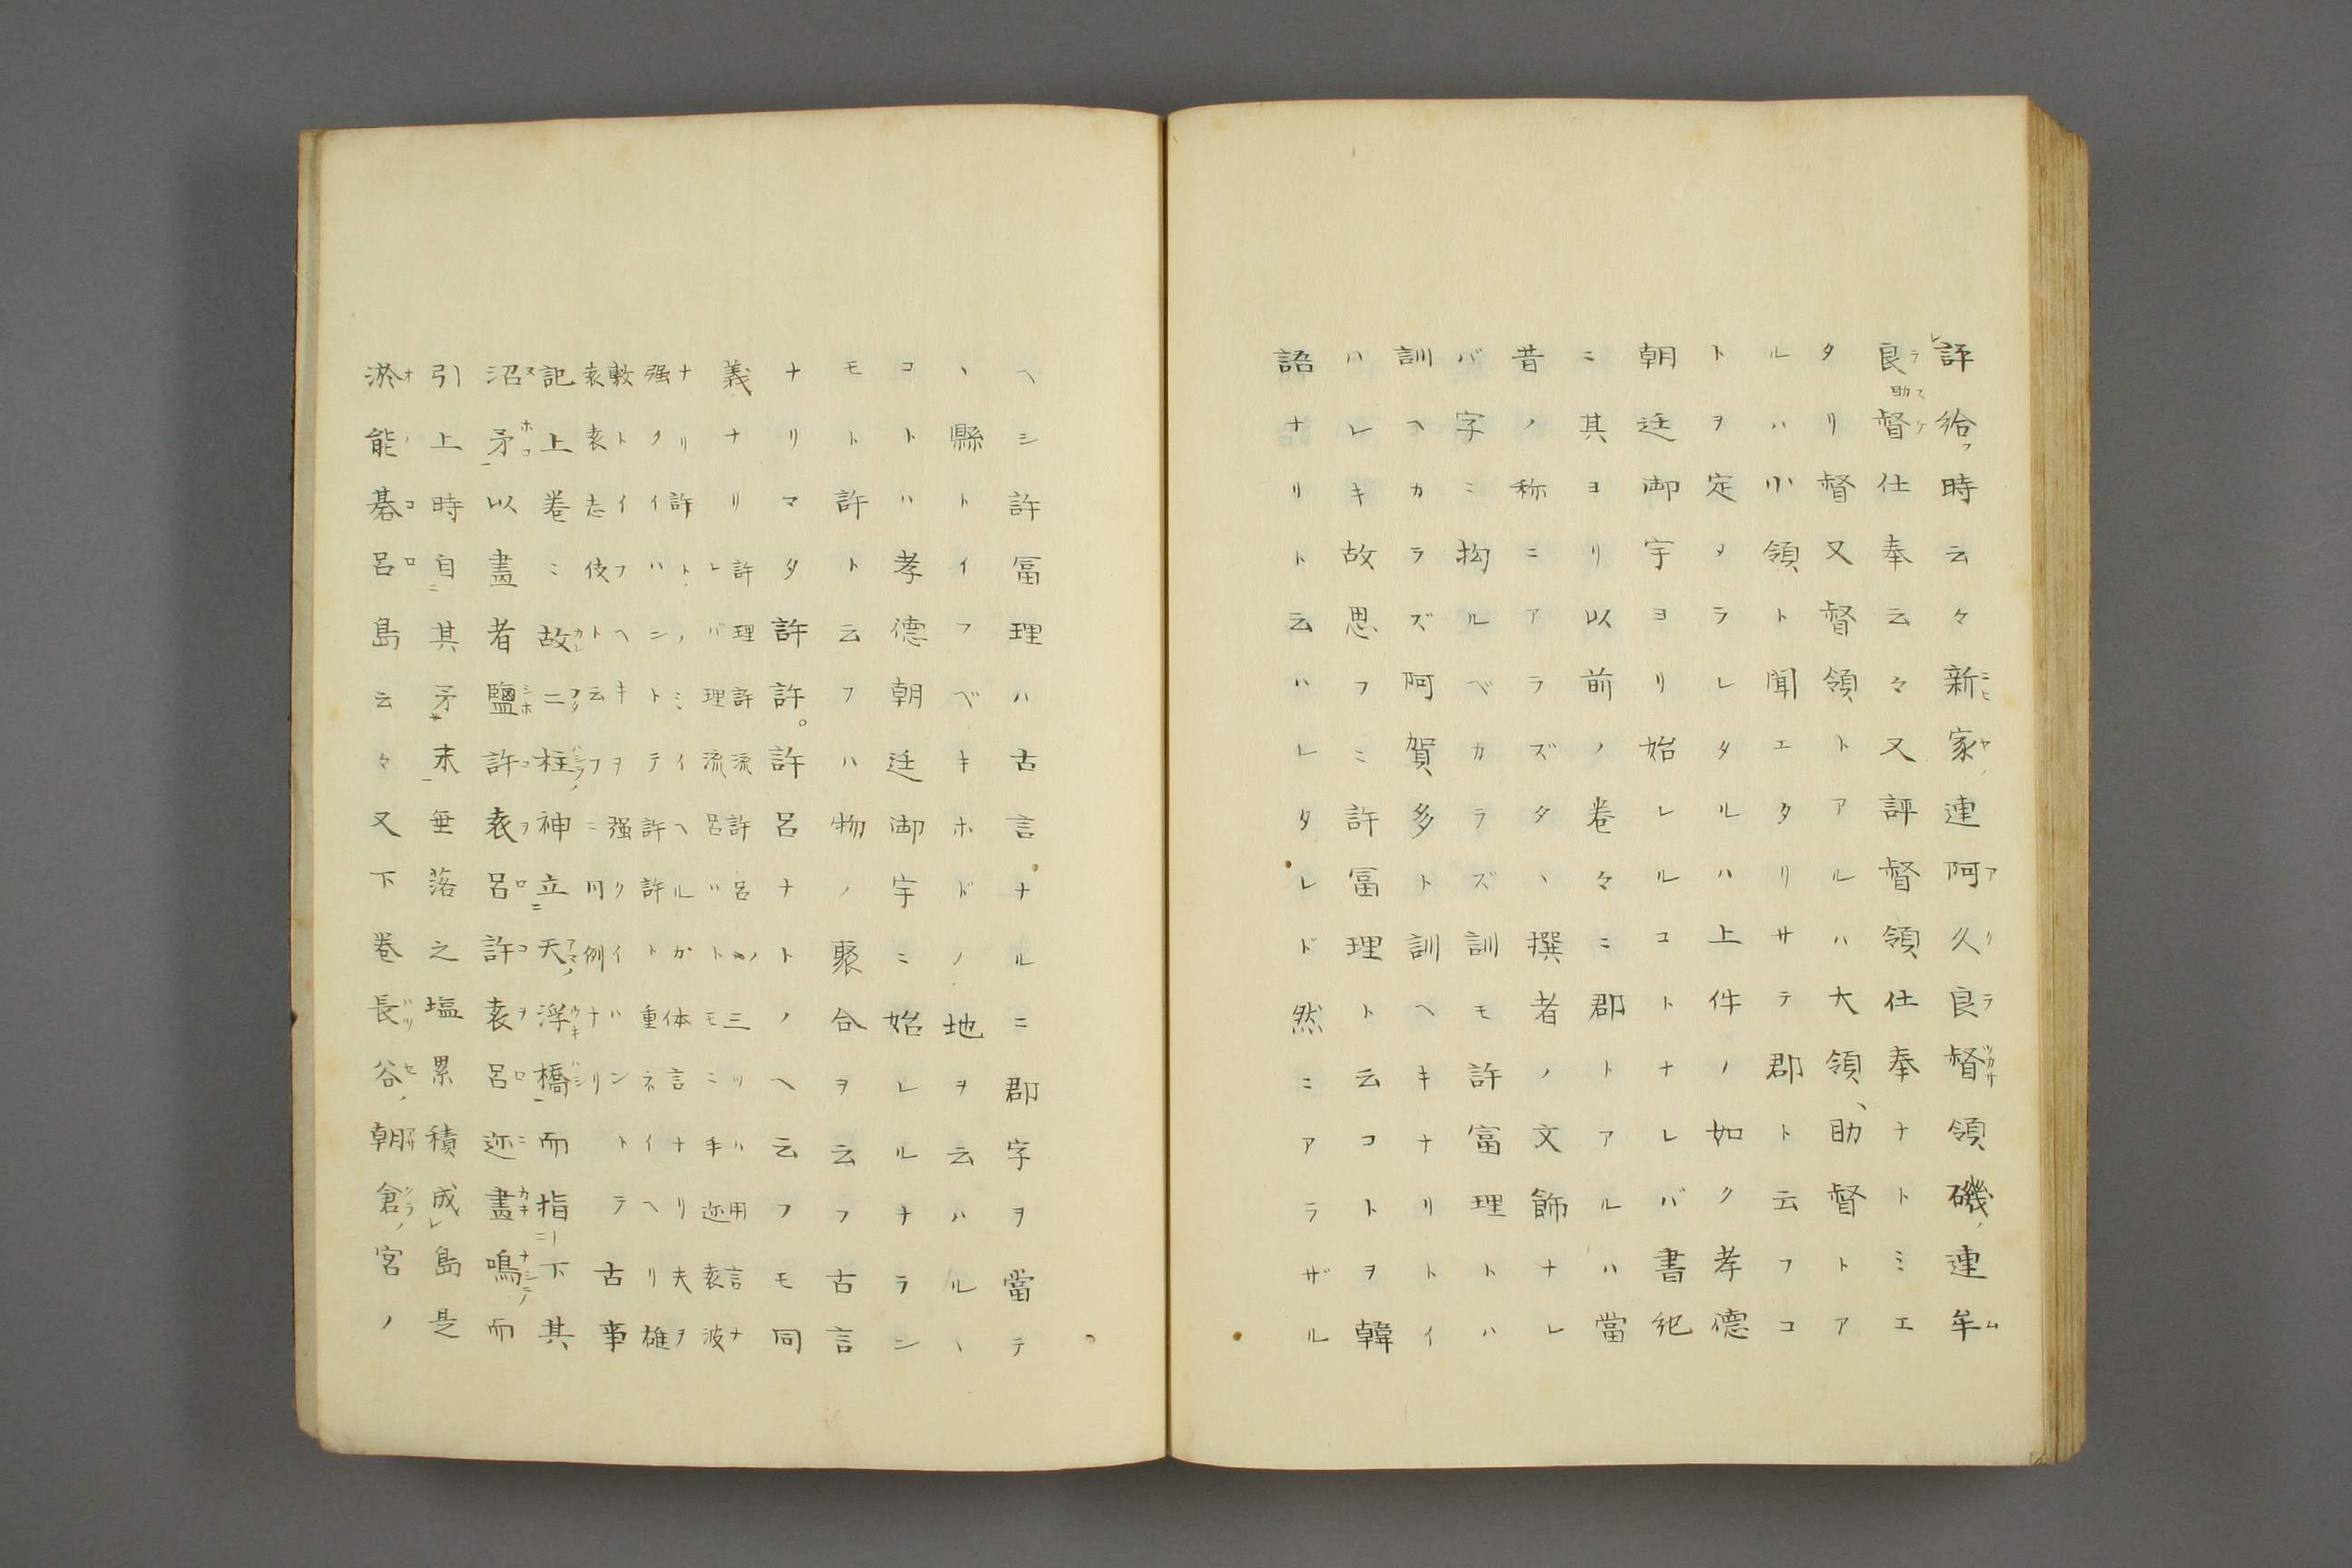 評給時云々新家連阿久良督領磯連牟
良督仕奉云々又評督領仕奉ナトミエ
タリ督又督領トアルハ大領、助督トア
ルハ小領ト聞エタリサテ郡ト云フコ
トヲ定メラレタルハ上件ノ如ク孝德
朝廷御宇ヨリ始レルコトナレバ書紀
ニ其ヨリ以前ノ卷々ニ郡トアルハ當
昔ノ称ニアラズタヽ撰者ノ文飾ナレ
バ字ミ拘ルベカラズ訓モ許富理トハ
訓ヘカラズ阿賀多ト訓ヘキナリトイ
ハレキ故思フニ許富理ト云コトヲ韓
語ナリト云ハレタレド然ニアラザル
ヘシ許冨理ハ古言ナルニ郡字ヲ當テ
ヽ縣トイフベキホドノ地ヲ云ハルヽ
コトハ孝德朝廷御宇ニ始レルナラン
モト許ト云フハ物ノ聚合ヲ云フ古言
ナリマタ許許。許呂ナトノヘ云フモ同
義ナリ
許理許流許呂ノ三ツハ用言ナ
レバ理流呂ハトモミ手迩袁波
ナリ許トノミイヘルカ体言ナリ夫ヲ
强クイハントテ許許ト重ネイヘリ雄
敷トイフヘキヲ强クイハントテ
袁袁志伎ト云フニ同例ナリ
古事
記上卷ミ故二柱神立天浮橋而指下其
沼矛以畫者鹽許袁呂許袁呂迩畫鳴而
引上時自其矛末垂落之塩累積成島是
淤能碁呂島云々又下卷長谷朝倉宮ノ